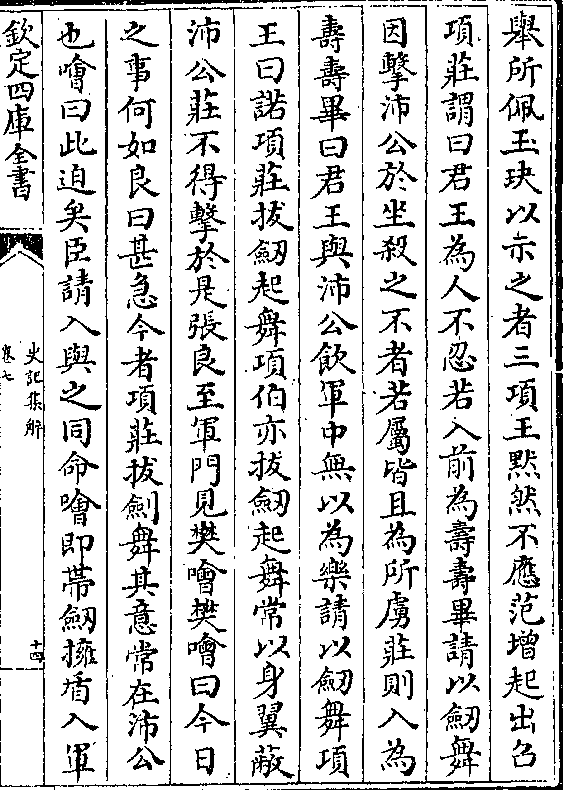 舉所佩玉玦以示之者三項王黙然不應范增起出召
項莊謂曰君王為人不忍若入前為壽壽畢請以劒舞
因擊沛公於坐殺之不者若屬皆且為所虜莊則入為
壽壽畢曰君王與沛公飲軍中無以為樂請以劒舞項
王曰諾項莊拔劒起舞項伯亦拔劒起舞常以身翼蔽
沛公莊不得擊於是張良至軍門見樊噲樊噲曰今日
之事何如良曰甚急今者項莊拔劍舞其意常在沛公
也噲曰此迫矣臣請入與之同命噲即帶劒擁盾入軍
欽定四庫全書
史記集解
卷七
十四